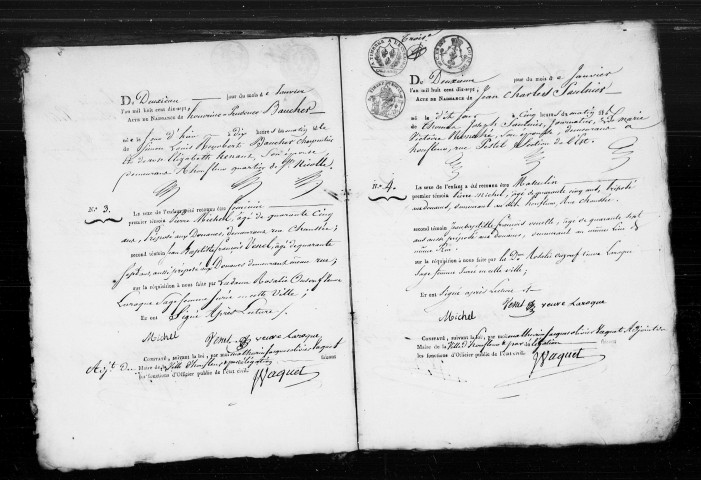 Du Deuxième jour du mois de Janvier
l'an mil huit cent dix-sept,
ACTE DE NAISSANCE de Honorine Prudence Baucher
née le jour d'hui à dix heures du matin
de Simon Louis Baucher Charpentier
et de Elizabeth Renaut, Son épouse
demeurans à honfleur quartier de St. Nicolle
N.° 3.
Le sexe de l'enfant a été reconnu être féminin
premier témoin Pierre Michel, âgé de quarante Cinq
ans, Préposé aux Douanes, demeurant rue Chaussée;
second témoin Jean Baptiste françois Venel, âgé de quarante
Sept ans, aussi préposé aux Douanes demeurant même rue;
sur la réquisition à nous faite par La dame Rosalie
Laroque Sage femme jurée en cette Ville;
Et ont Signé Après Lecture
Michel Venel veuve Laroque,
CONSTATÉ, suivant la loi, par moi Mathurin Jacques olivier Paquet
Adj.t Maire de la Ville d'honfleur par délégation faisant
les fonctions d'Officier public de l'état civil.
Paquet
Du Deuxième jour du mois de Janvier
l'an mil huit cent dix-sept,
ACTE DE NAISSANCE de Jean Charles Saulnier
né le d'hier à Cinq heures du matin
de Thomas Joseph Saulnier, journalier, & de Marie
Victoire son épouse, demeurans à
honfleur, rue
N.° 4.
Le sexe de l'enfant a été reconnu être Masculin
premier témoin Pierre Michel, âgé de quarante cinq ans, préposé
aux douanes, demeurant au dit honfleur, rue chaussée.
second témoin Jean baptiste françois venel, âgé de quarante sept
ans aussi préposé aux douanes, demeurant au même lieu
sur la réquisition à nous faite par la Dme Rosalie veuve Laroque
Sage femme jurée en cette ville;
Et ont Signé après Lecture
Michel Venel veuve Laroque
CONSTATÉ, suivant la loi, par moi Mathurin Jacques olivier Paquet Adjoint au
Maire de la Ville d'honfleur par délégation faisant
les fonctions d'Officier public de l'état civil.
Paquet